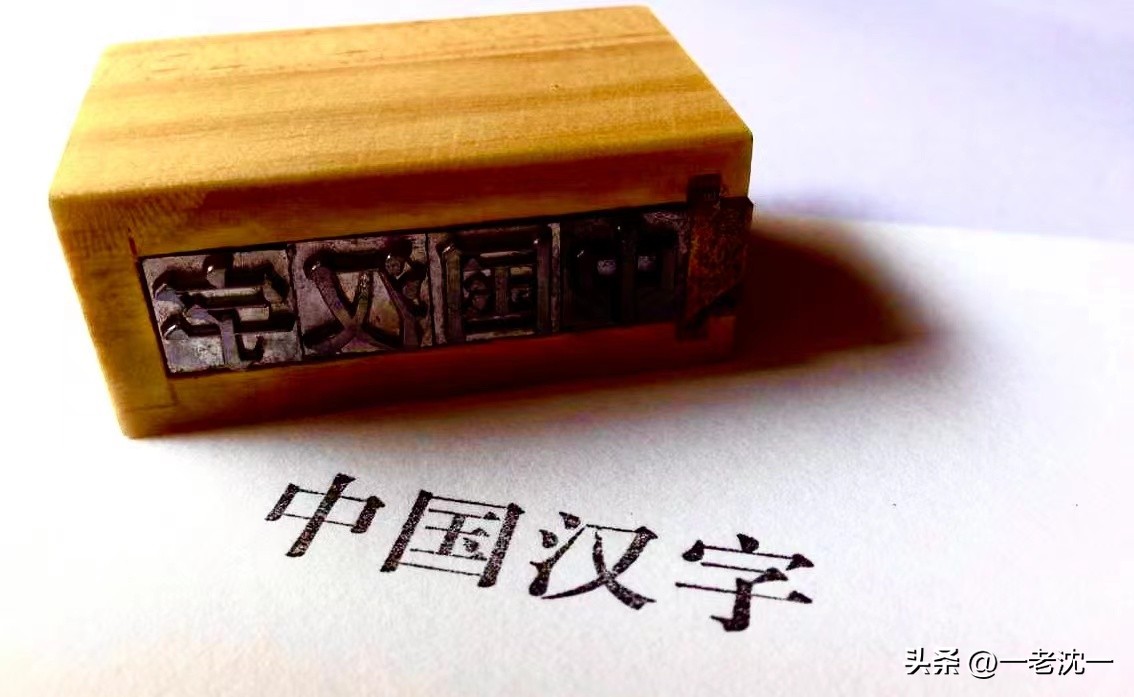 字汉国中
中国汉字
头条 @一老沈一